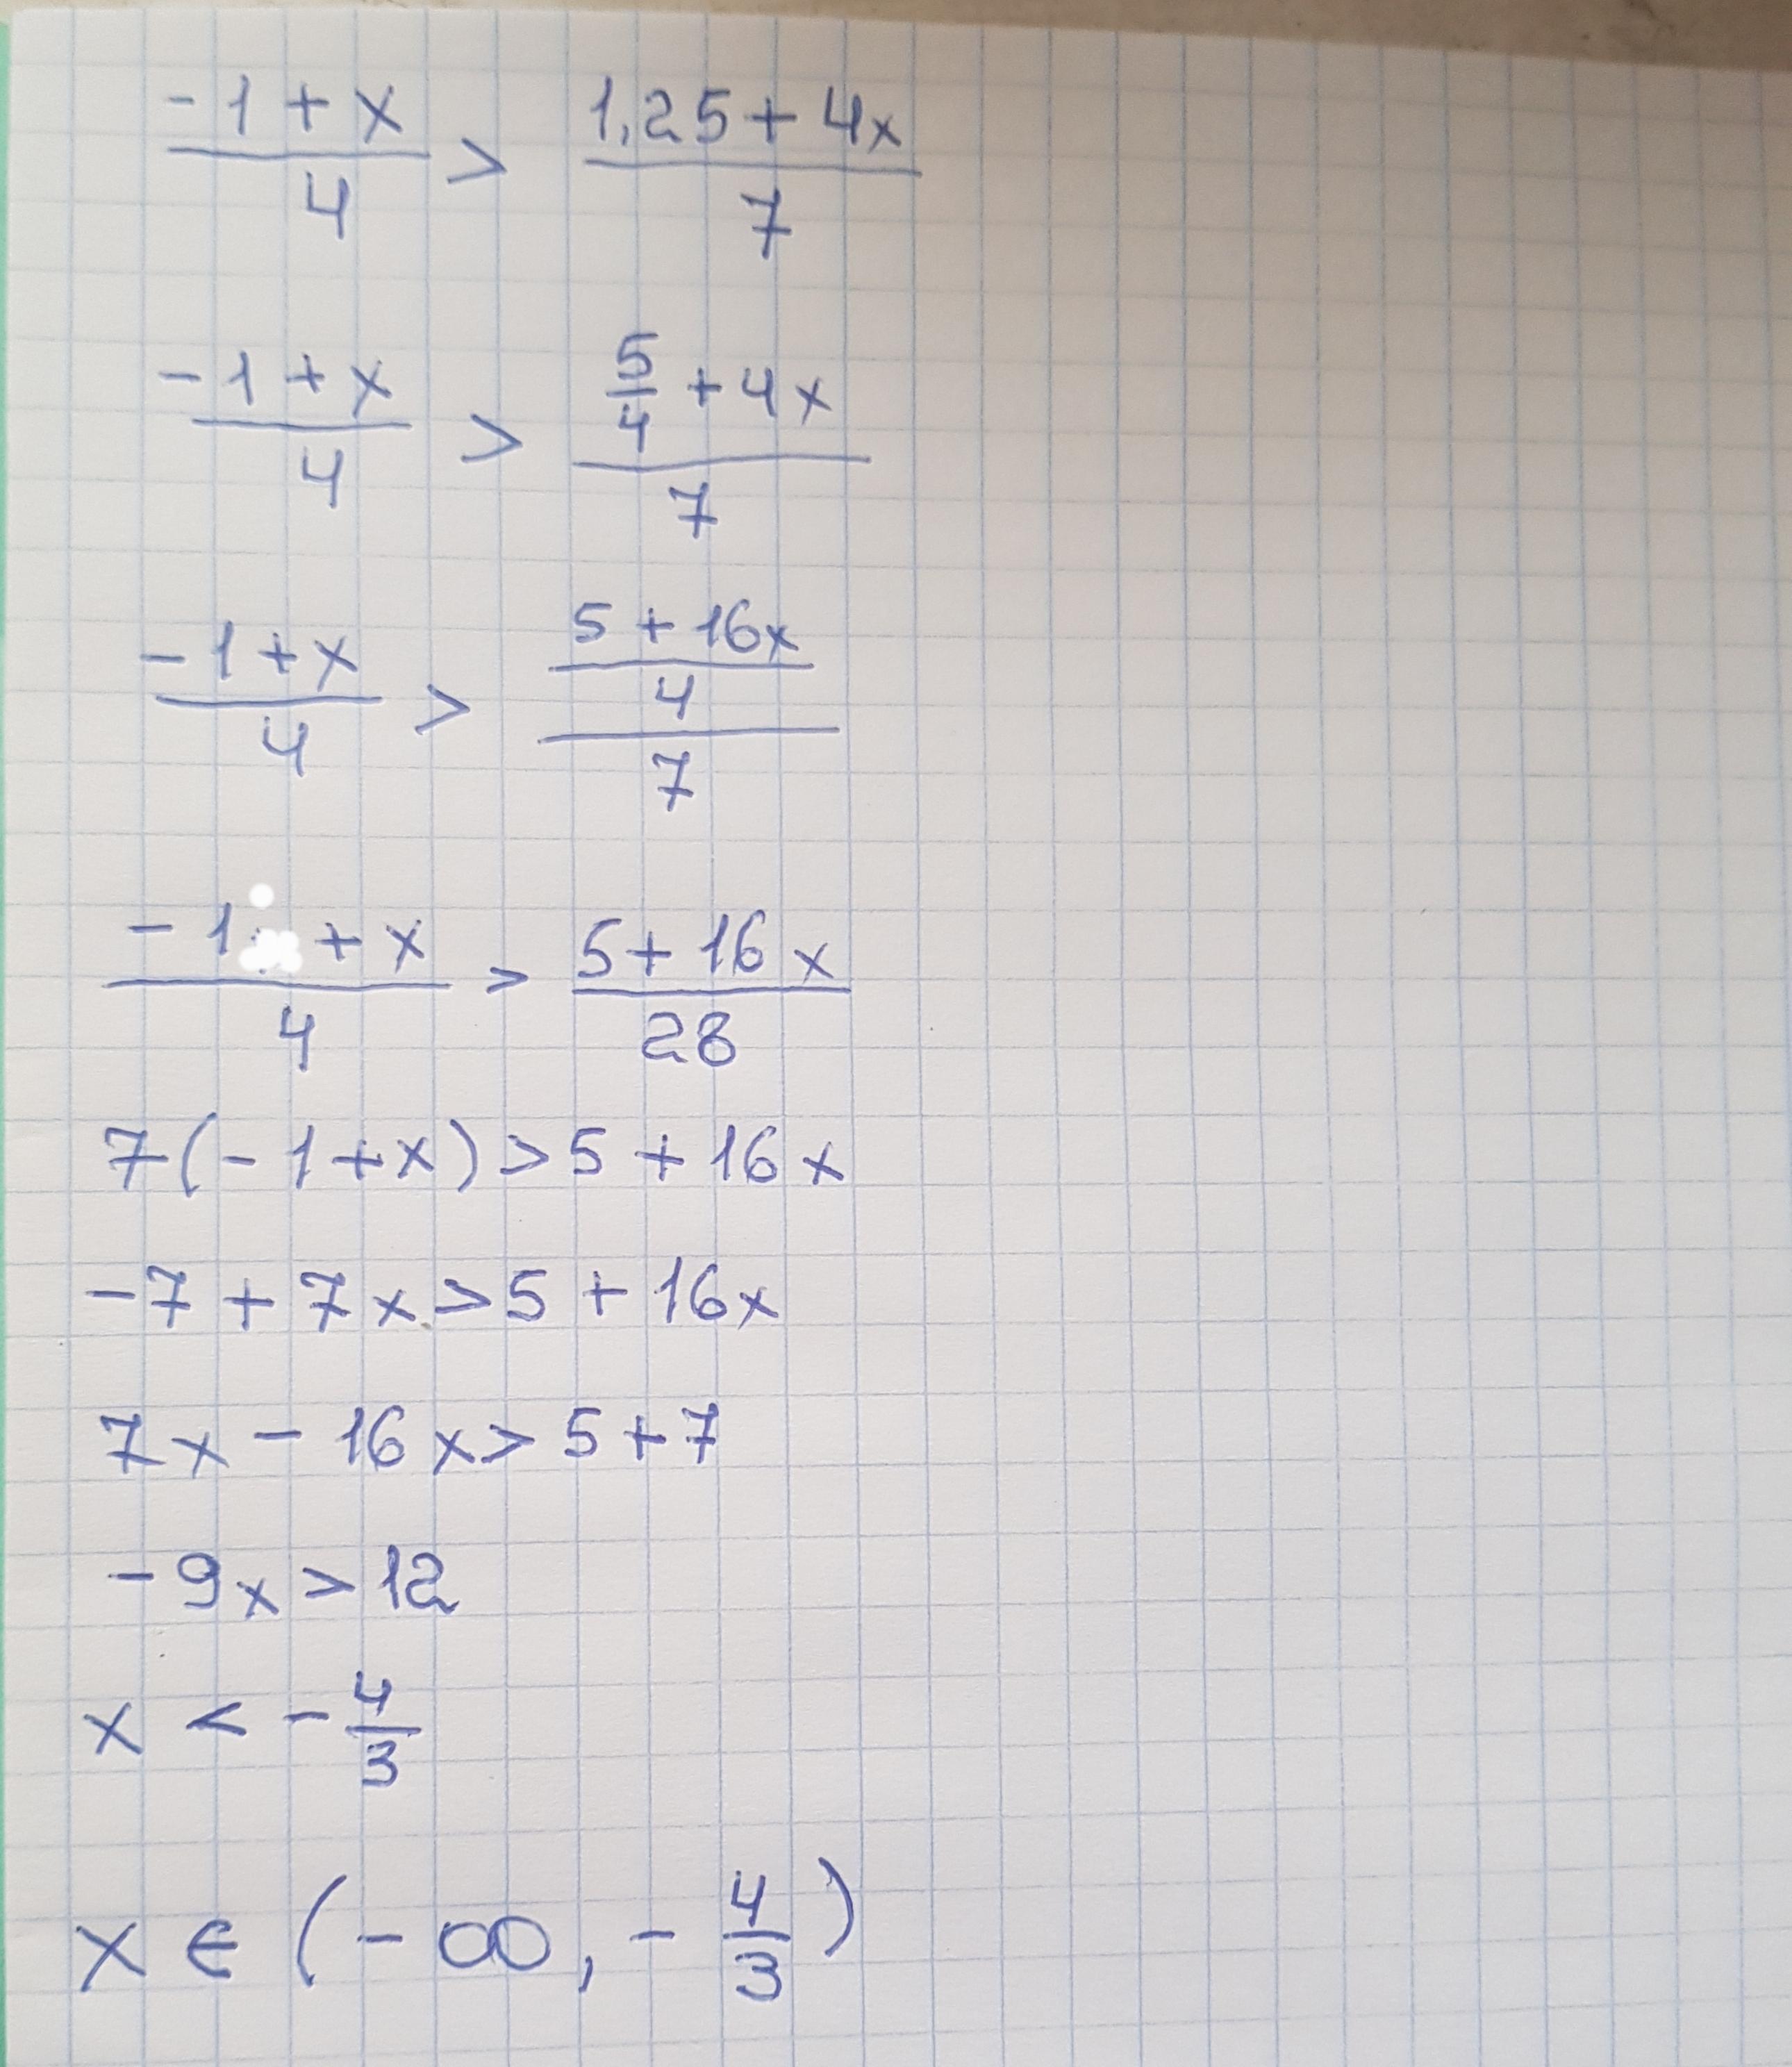 (-1 + x)/4 > (1,25 + 4x)/7
(-1 + x)/4 > (5/4 + 4x)/7
(-1 + x)/4 > ((5 + 16x)/4)/7
(-1 + x)/4 > (5 + 16x)/28
7(-1 + x) > 5 + 16x
-7 + 7x > 5 + 16x
7x - 16x > 5 + 7
-9x > 12
x < -4/3
x ∈ (-∞, -4/3)